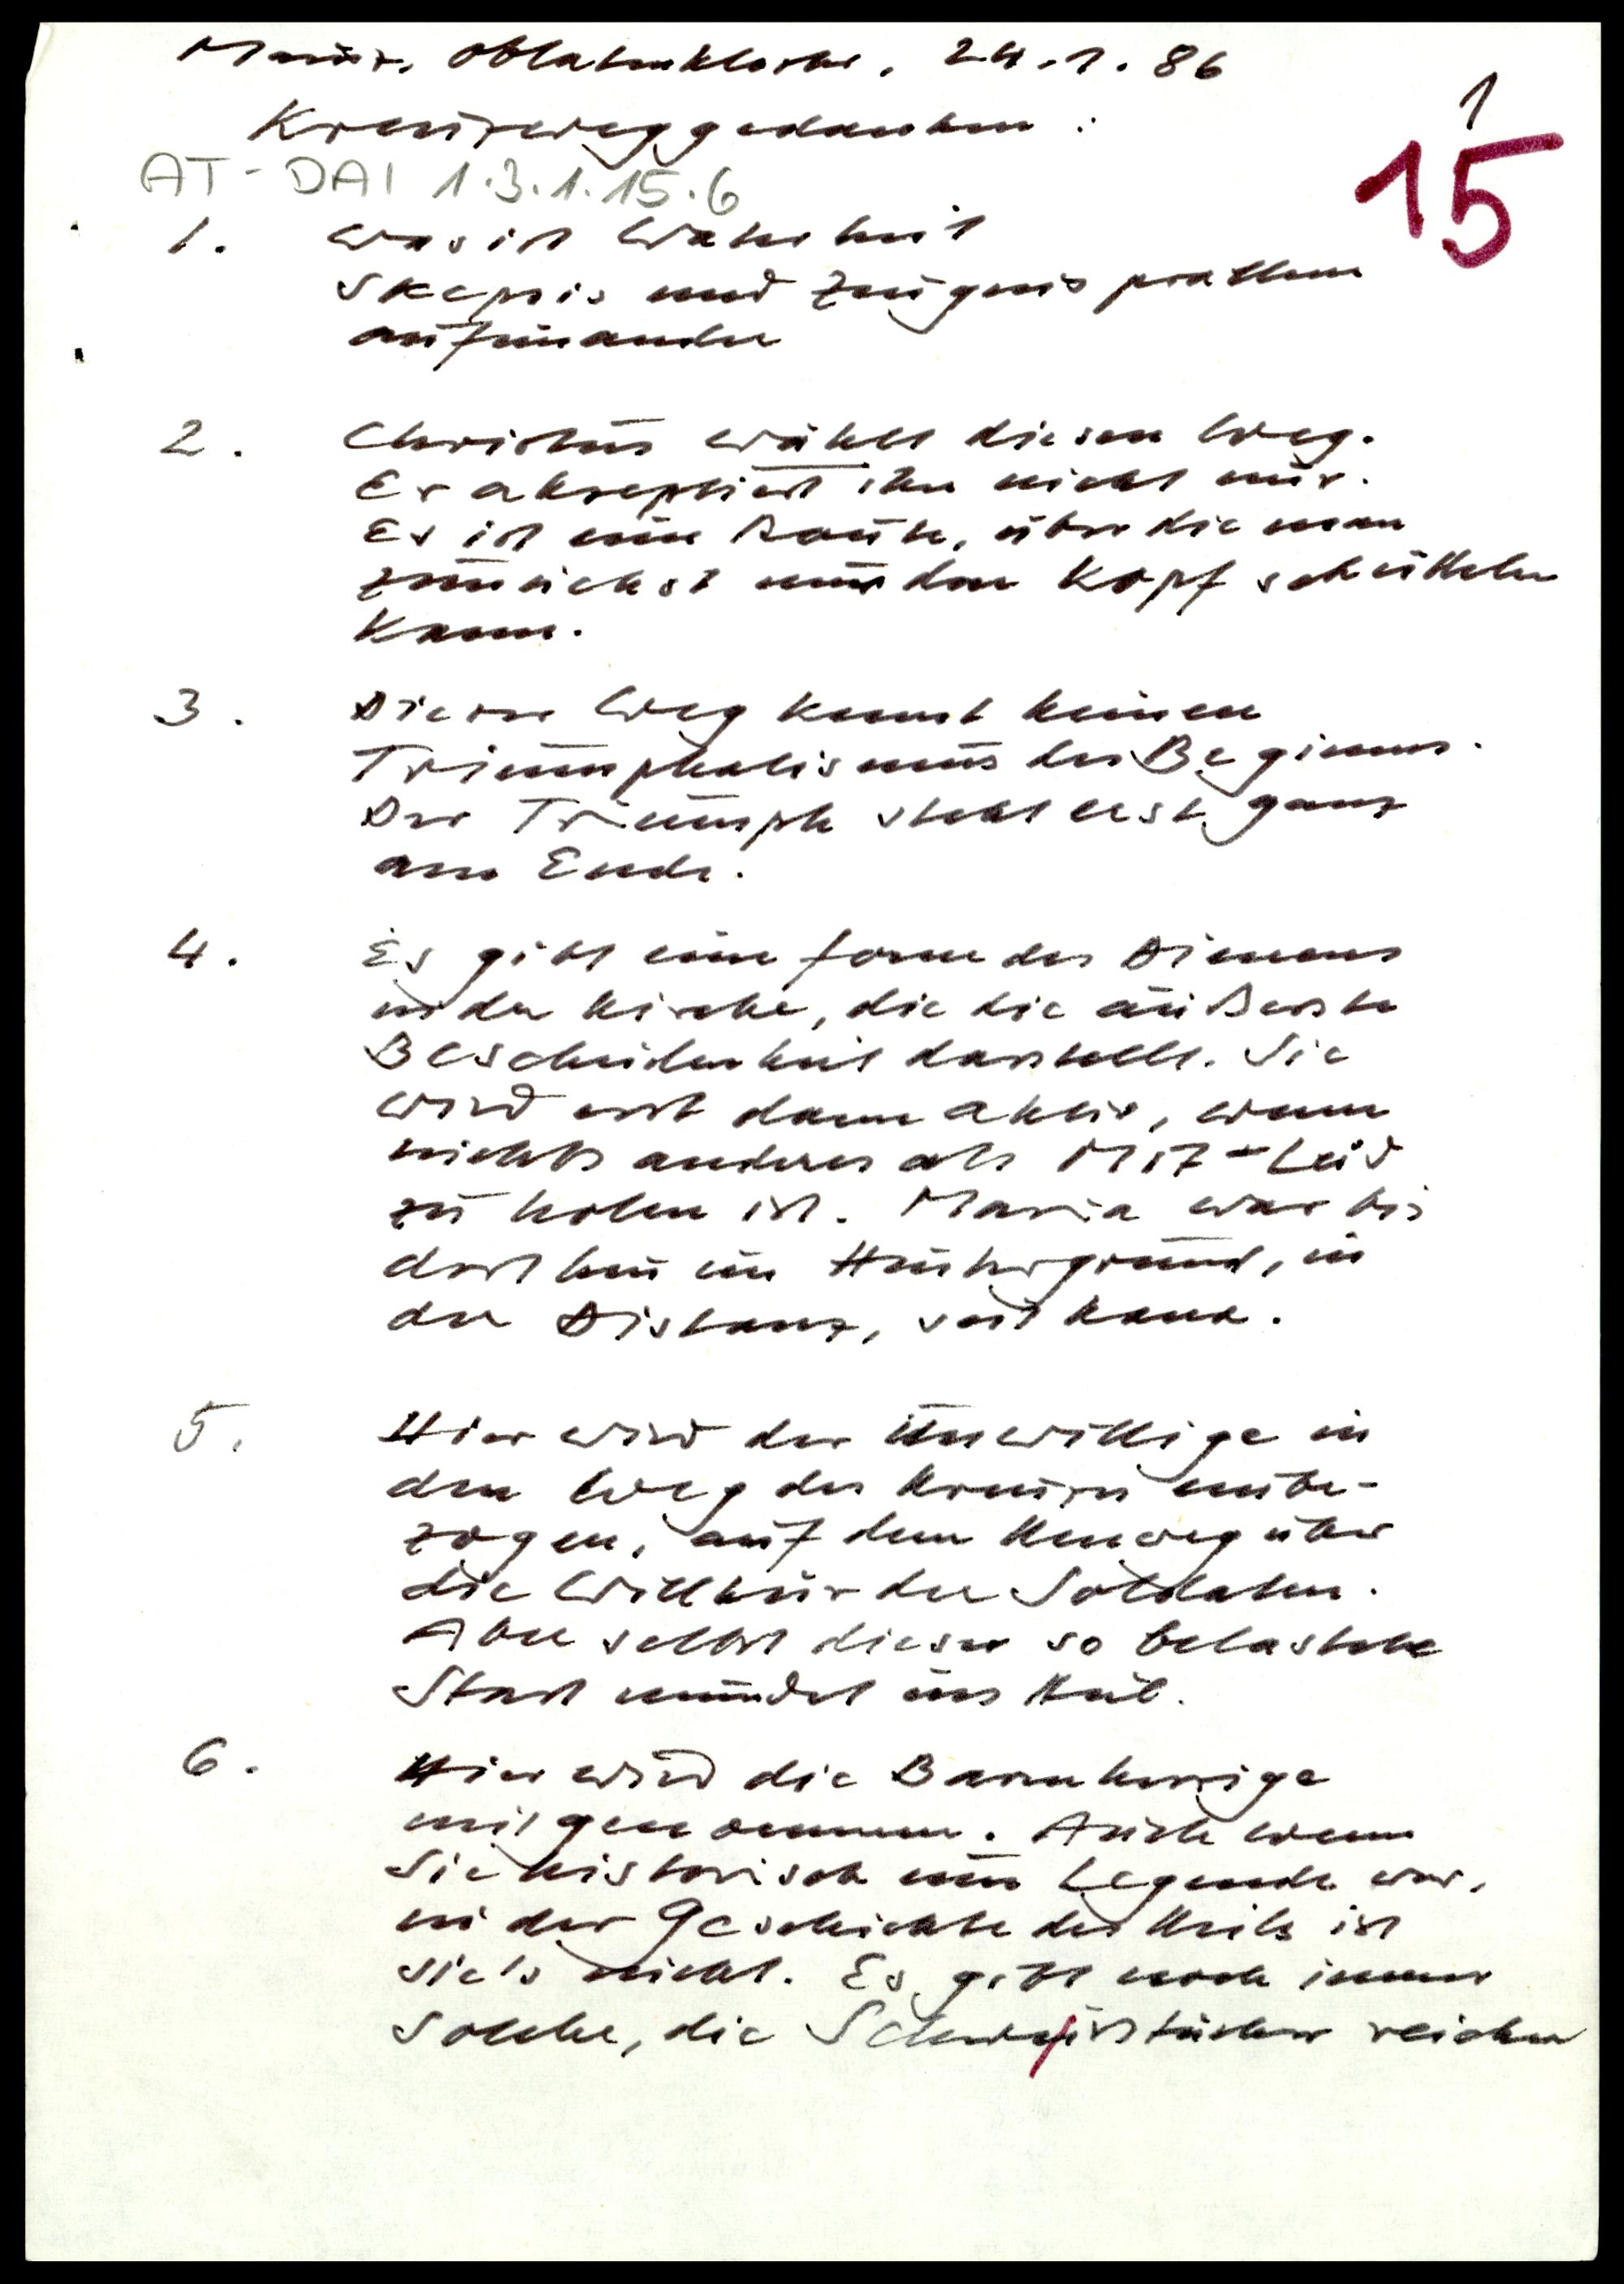 Mainz, Oblatenkloster, 24.1.86
1
15
Kreuzweggedanken:
AT-DAI 1.3.1.15.6
1. Was ist Wahrheit
Skepsis und Zeugnis prallen
aufeinander
2. Christus wählt diesen Weg.
Er akzeptiert ihn nicht nur.
Es ist eine Route, über die man
zunächst nur den Kopf schütteln
kann.
3. Dieser Weg kennt keinen
Triumphalismus des Beginnes.
Der Triumph steht erst ganz
am Ende.
4. Es gibt eine Form des Dienens
in der Kirche, die die äußerste
Bescheidenheit darstellt. Sie
wird erst dann aktiv, wenn
nichts anderes als Mit-Leid
zu holen ist. Maria war bis
dorthin im Hintergrund, in
der Distanz,
5. Hier wird der Unwillige in
den Weg des Kreuzes einbe-
zogen, auf dem Umweg über
die Willkür der Soldaten.
Aber selbst dieser so belastete
Start mündet ins Heil.
6. Hier wird die Barmherzige
mitgenommen. Auch wenn
sie historisch eine Legende war,
in der Geschichte des Heils ist
sie's nicht. Es gibt noch immer
solche, die Schweißtücher reichen